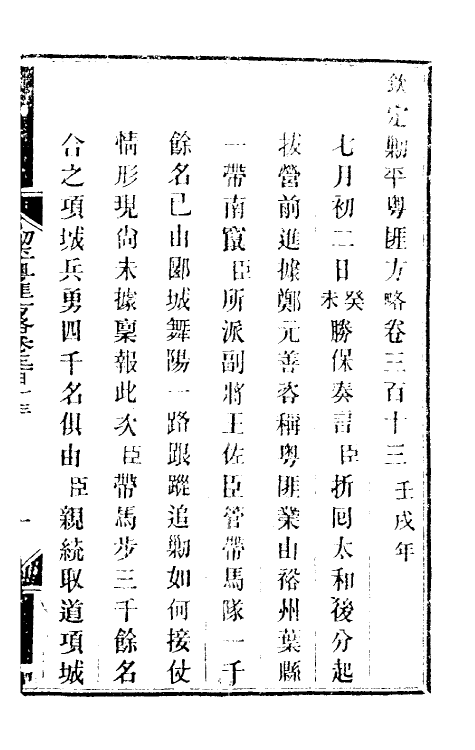 欽定勦平粵匪方略卷三百十三 壬戌年
七月初二日癸未勝保奏言臣折囘太和後分起
拔營前進據鄭元善咨稱粵匪業由裕州葉縣
一帶南竄臣所派副將王佐臣管帶馬隊一千
餘名已由郾城舞陽一路跟蹤追勦如何接仗
情形現尙未據稟報此次臣帶馬步三千餘名
合之項城兵勇四千名俱由臣親統取道項城
一